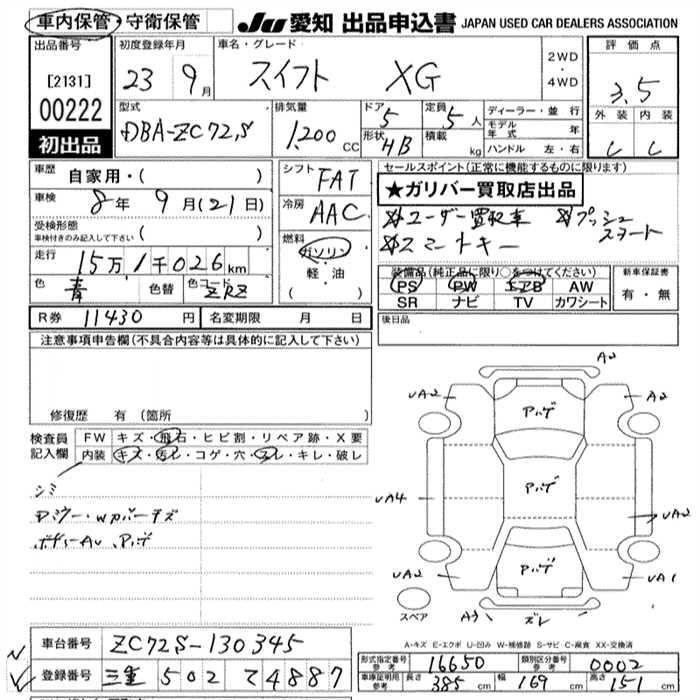 車内保管・守衛保管
JU 愛知 出品申込書 JAPAN USED CAR DEALERS ASSOCIATION
出品番号 [2131] 00222 初出品
初度登録年月 23 9月
車名・グレード スイフト XG
2WD・4WD
評価点 3.5
外装 C 内装 C
型式 DBA-ZC72S
排気量 1,200 CC
ドア 5
形状 HB
定員 5人
積載 kg
ディーラー・並行
モデル年式 年
ハンドル 左・右
車歴 自家用・( )
車検 8年 9月(21日)
受検形態 ( )
車検付きのみ記入して下さい
走行 15万1千026km
色 青 色替 色コード ZRZ
シフト FAT
冷房 AAC
燃料 ガソリン 軽・油 ( )
セールスポイント(正常に機能するものに限ります)
★ガリバー買取店出品
ユーザー買取車 プッシュ
スタート
スマートキー
装備品(純正品に限り○をつけてください)
PS PW エアB AW
SR ナビ TV カワシート
新車保証書 有・無
R券 11430円 名変期限 月 日
後日品
注意事項申告欄(不具合内容等は具体的に記入して下さい)
修復歴 有(箇所
検査員記入欄
FW キズ・飛石・ヒビ割・リペア跡・X要
内装 キズ・汚レ・コゲ・穴・スレ・キレ・破レ
シミ
A2
UA2 A2
アメゲ
アメゲ
UA4 UA2
アメゲ
UA2 UA1
スペア
A3 ズレ
A-キズ E-エクボ U-凹み W-補修跡 S-サビ C-腐食 XX-交換済
車台番号 ZC72S-130345
登録番号 三重 502 て 4887
型式指定番号 参考 16650 類別区分番号 参考 0002
車庫証明用 参考 長さ 385cm 幅 169cm 高さ 151cm